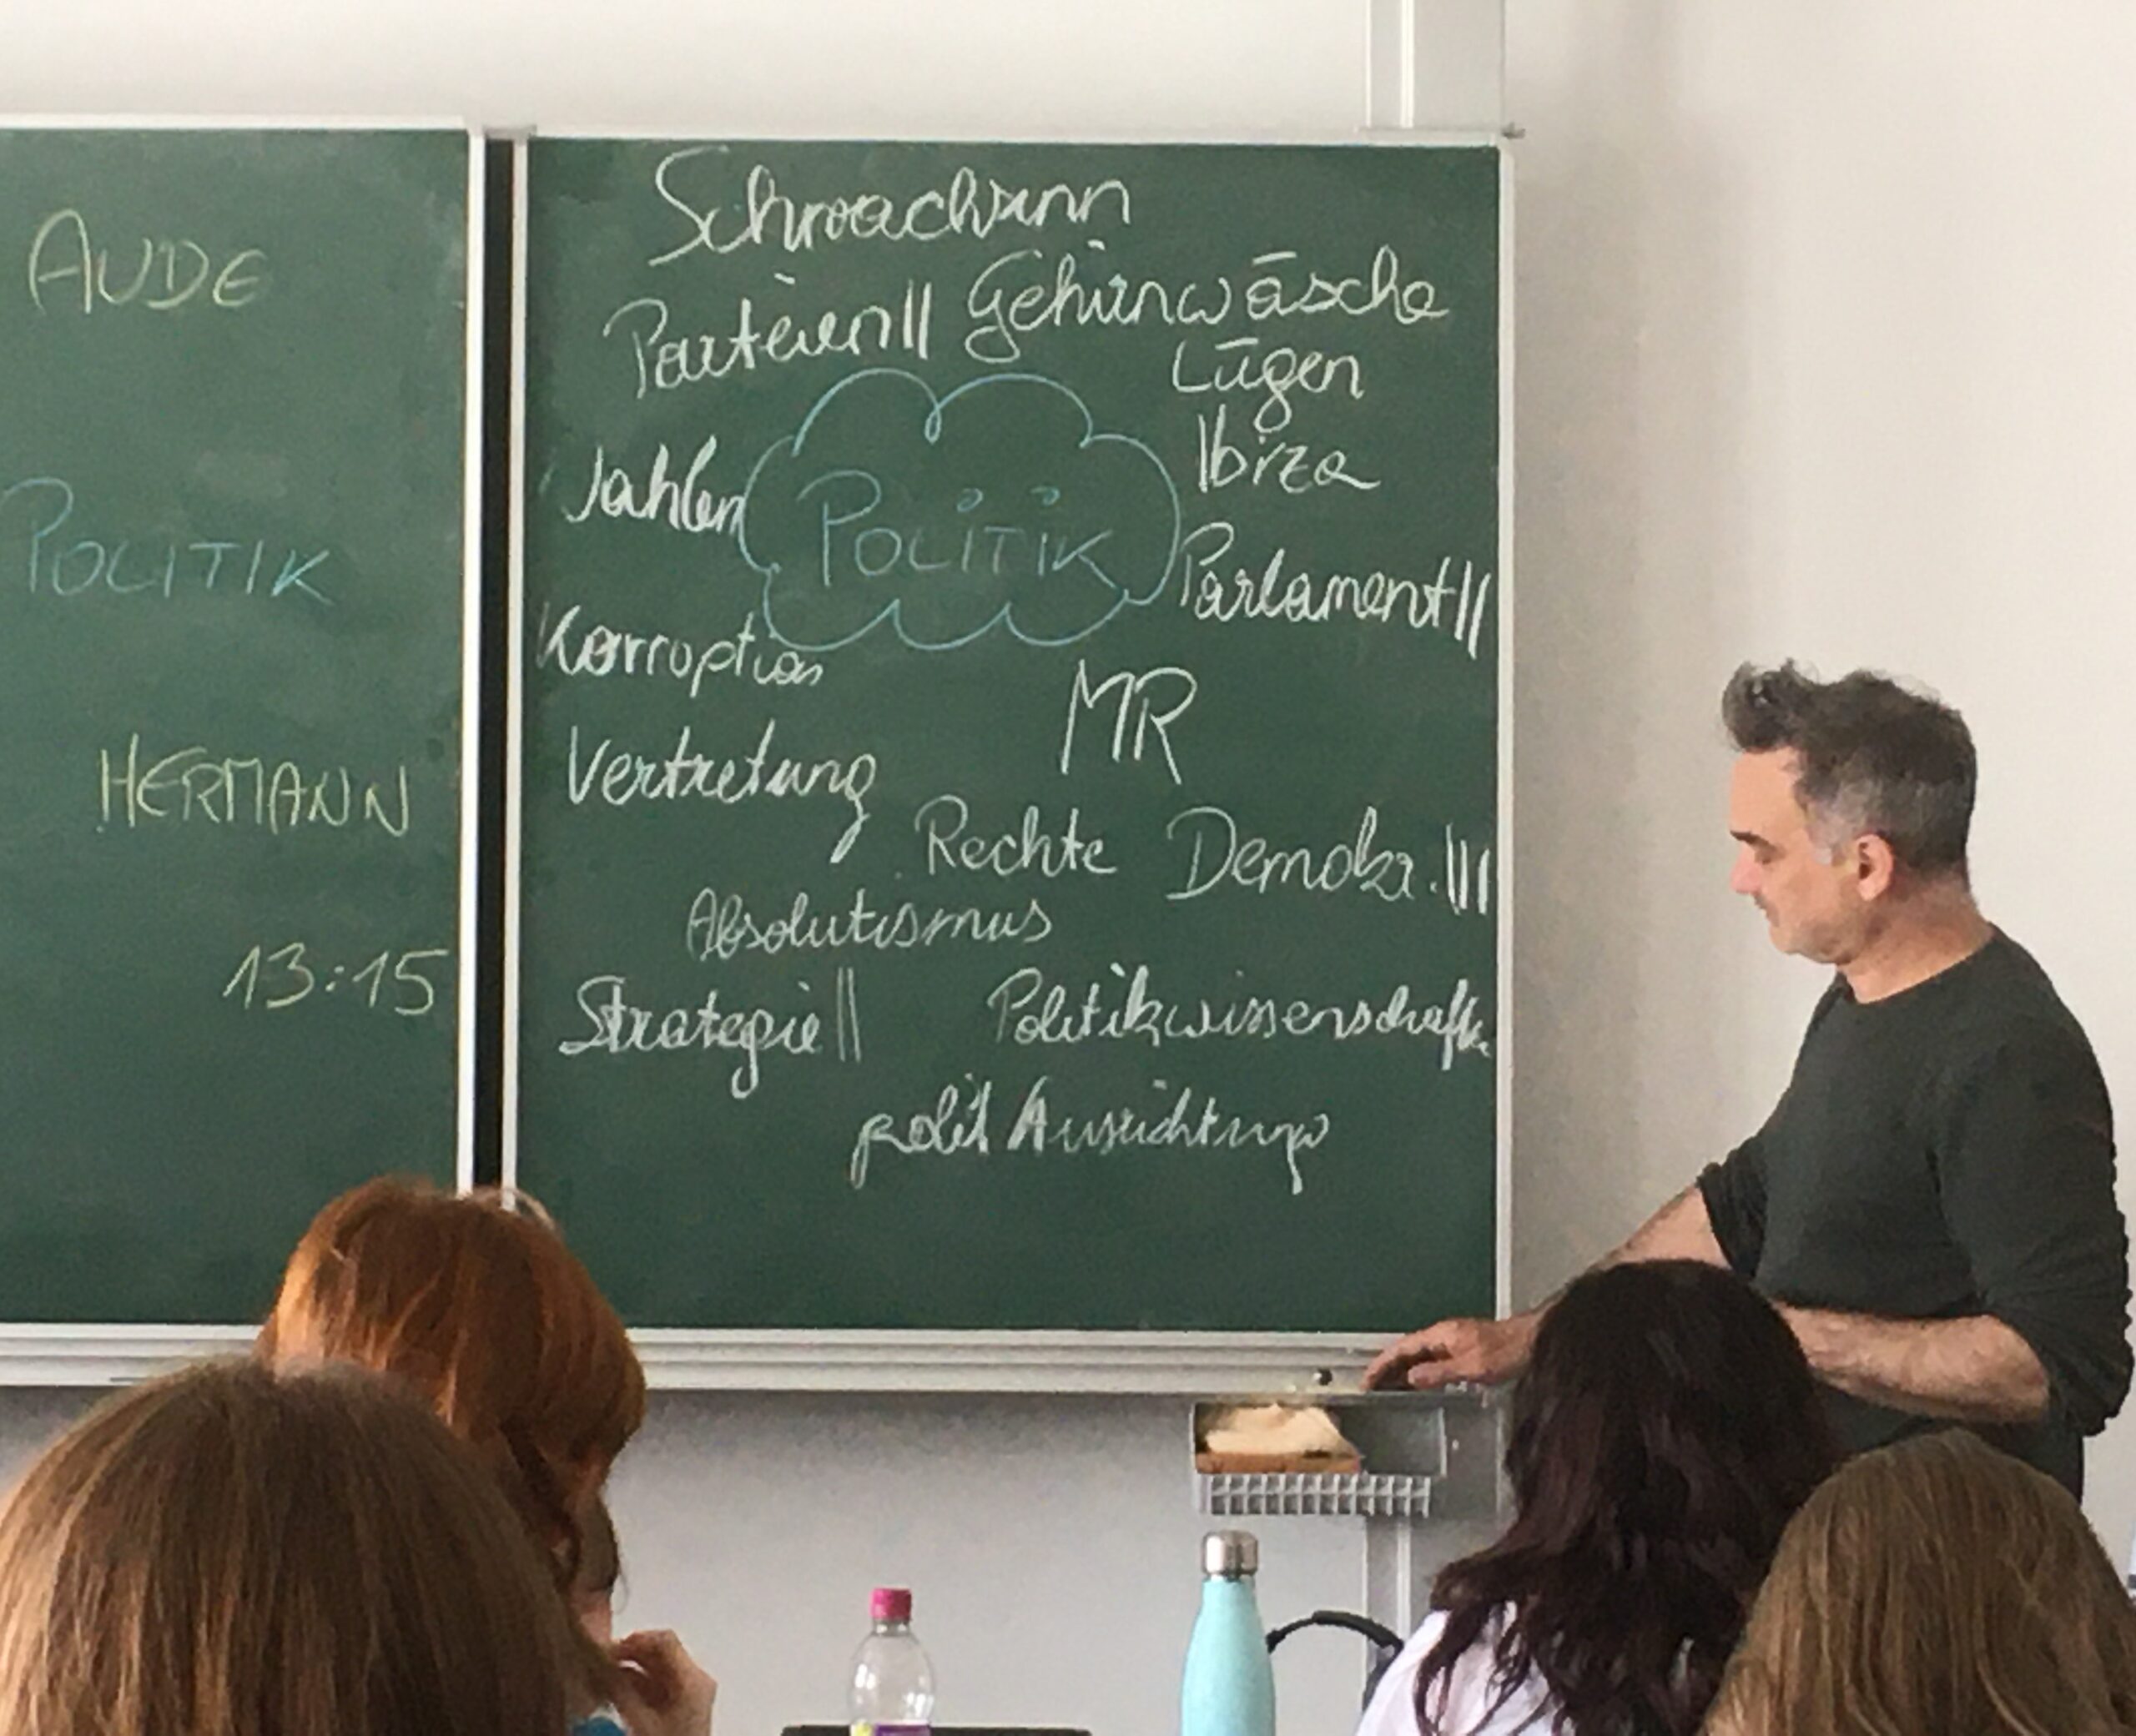 AUDE
POLITIK
HERMANN
13:15
Schwachsinn
Parteien || Gehirnwäsche
Lügen
Ibiza
Wahlen
POLITIK
Parlament ||
Korruption
MR
Vertretung
Rechte Demokr. |||
Absolutismus
Strategie || Politikwissenschaft
polit Ausrichtung